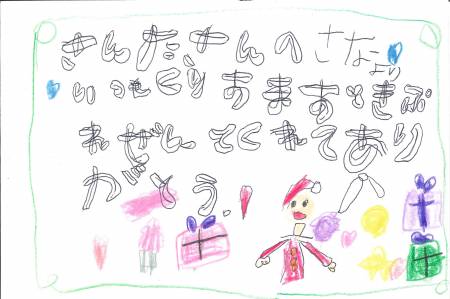 さんたさんへ さなより
いっつくりすますすてきぷ
れぜんてくれてあり
がとう